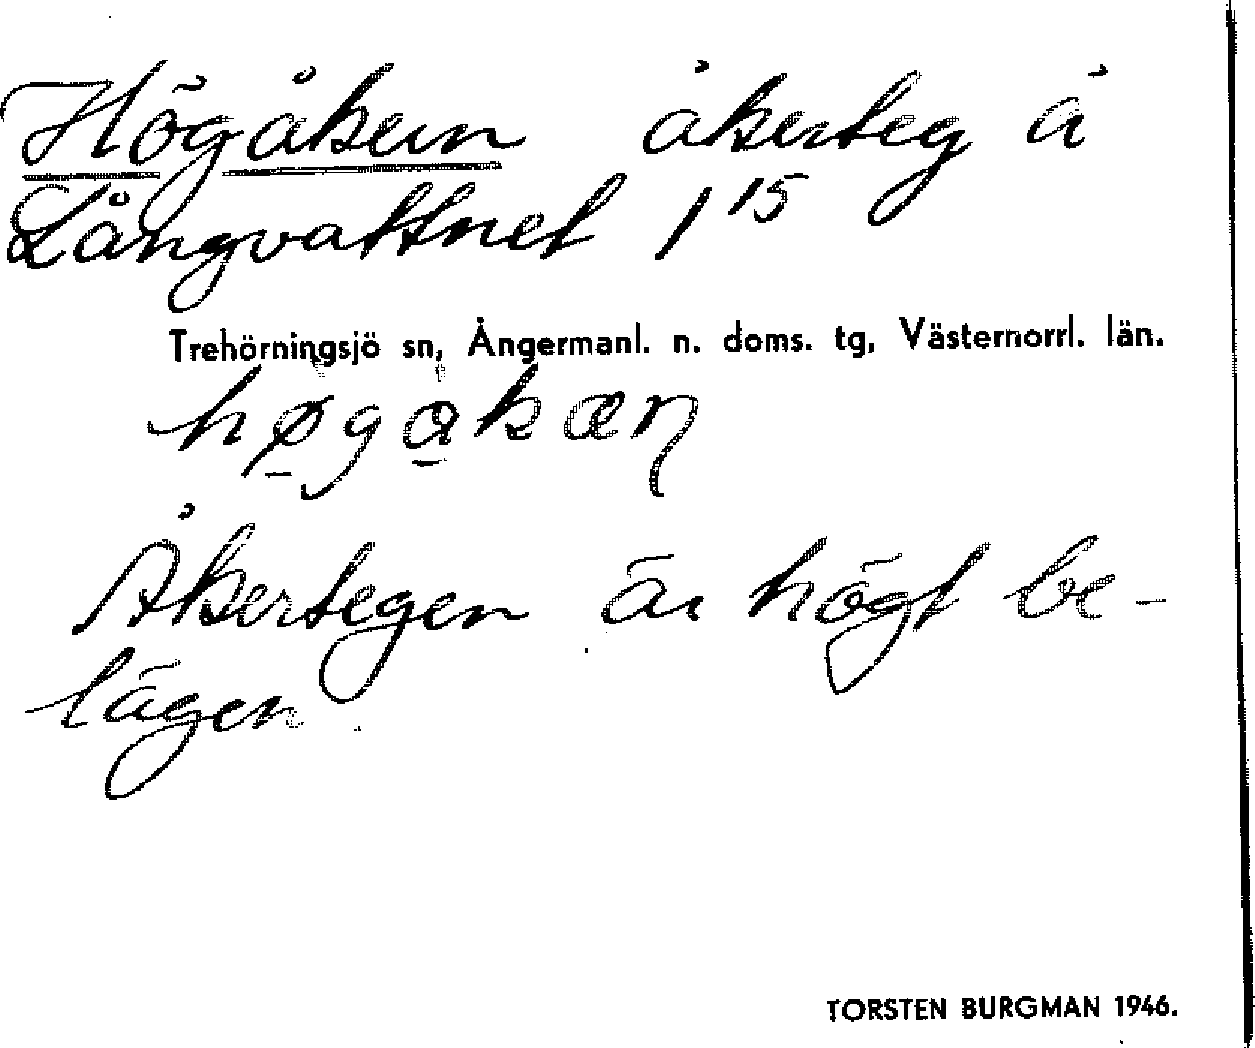 Högåkern åkerteg å
Långvattnet 1¹⁵
Trehörningsjö sn, Ångermanl. n. doms. tg, Västernorrl. län.
hø̱ga̱kæɳ
Åkertegen är högt be-
lägen.
TORSTEN BURGMAN 1946.